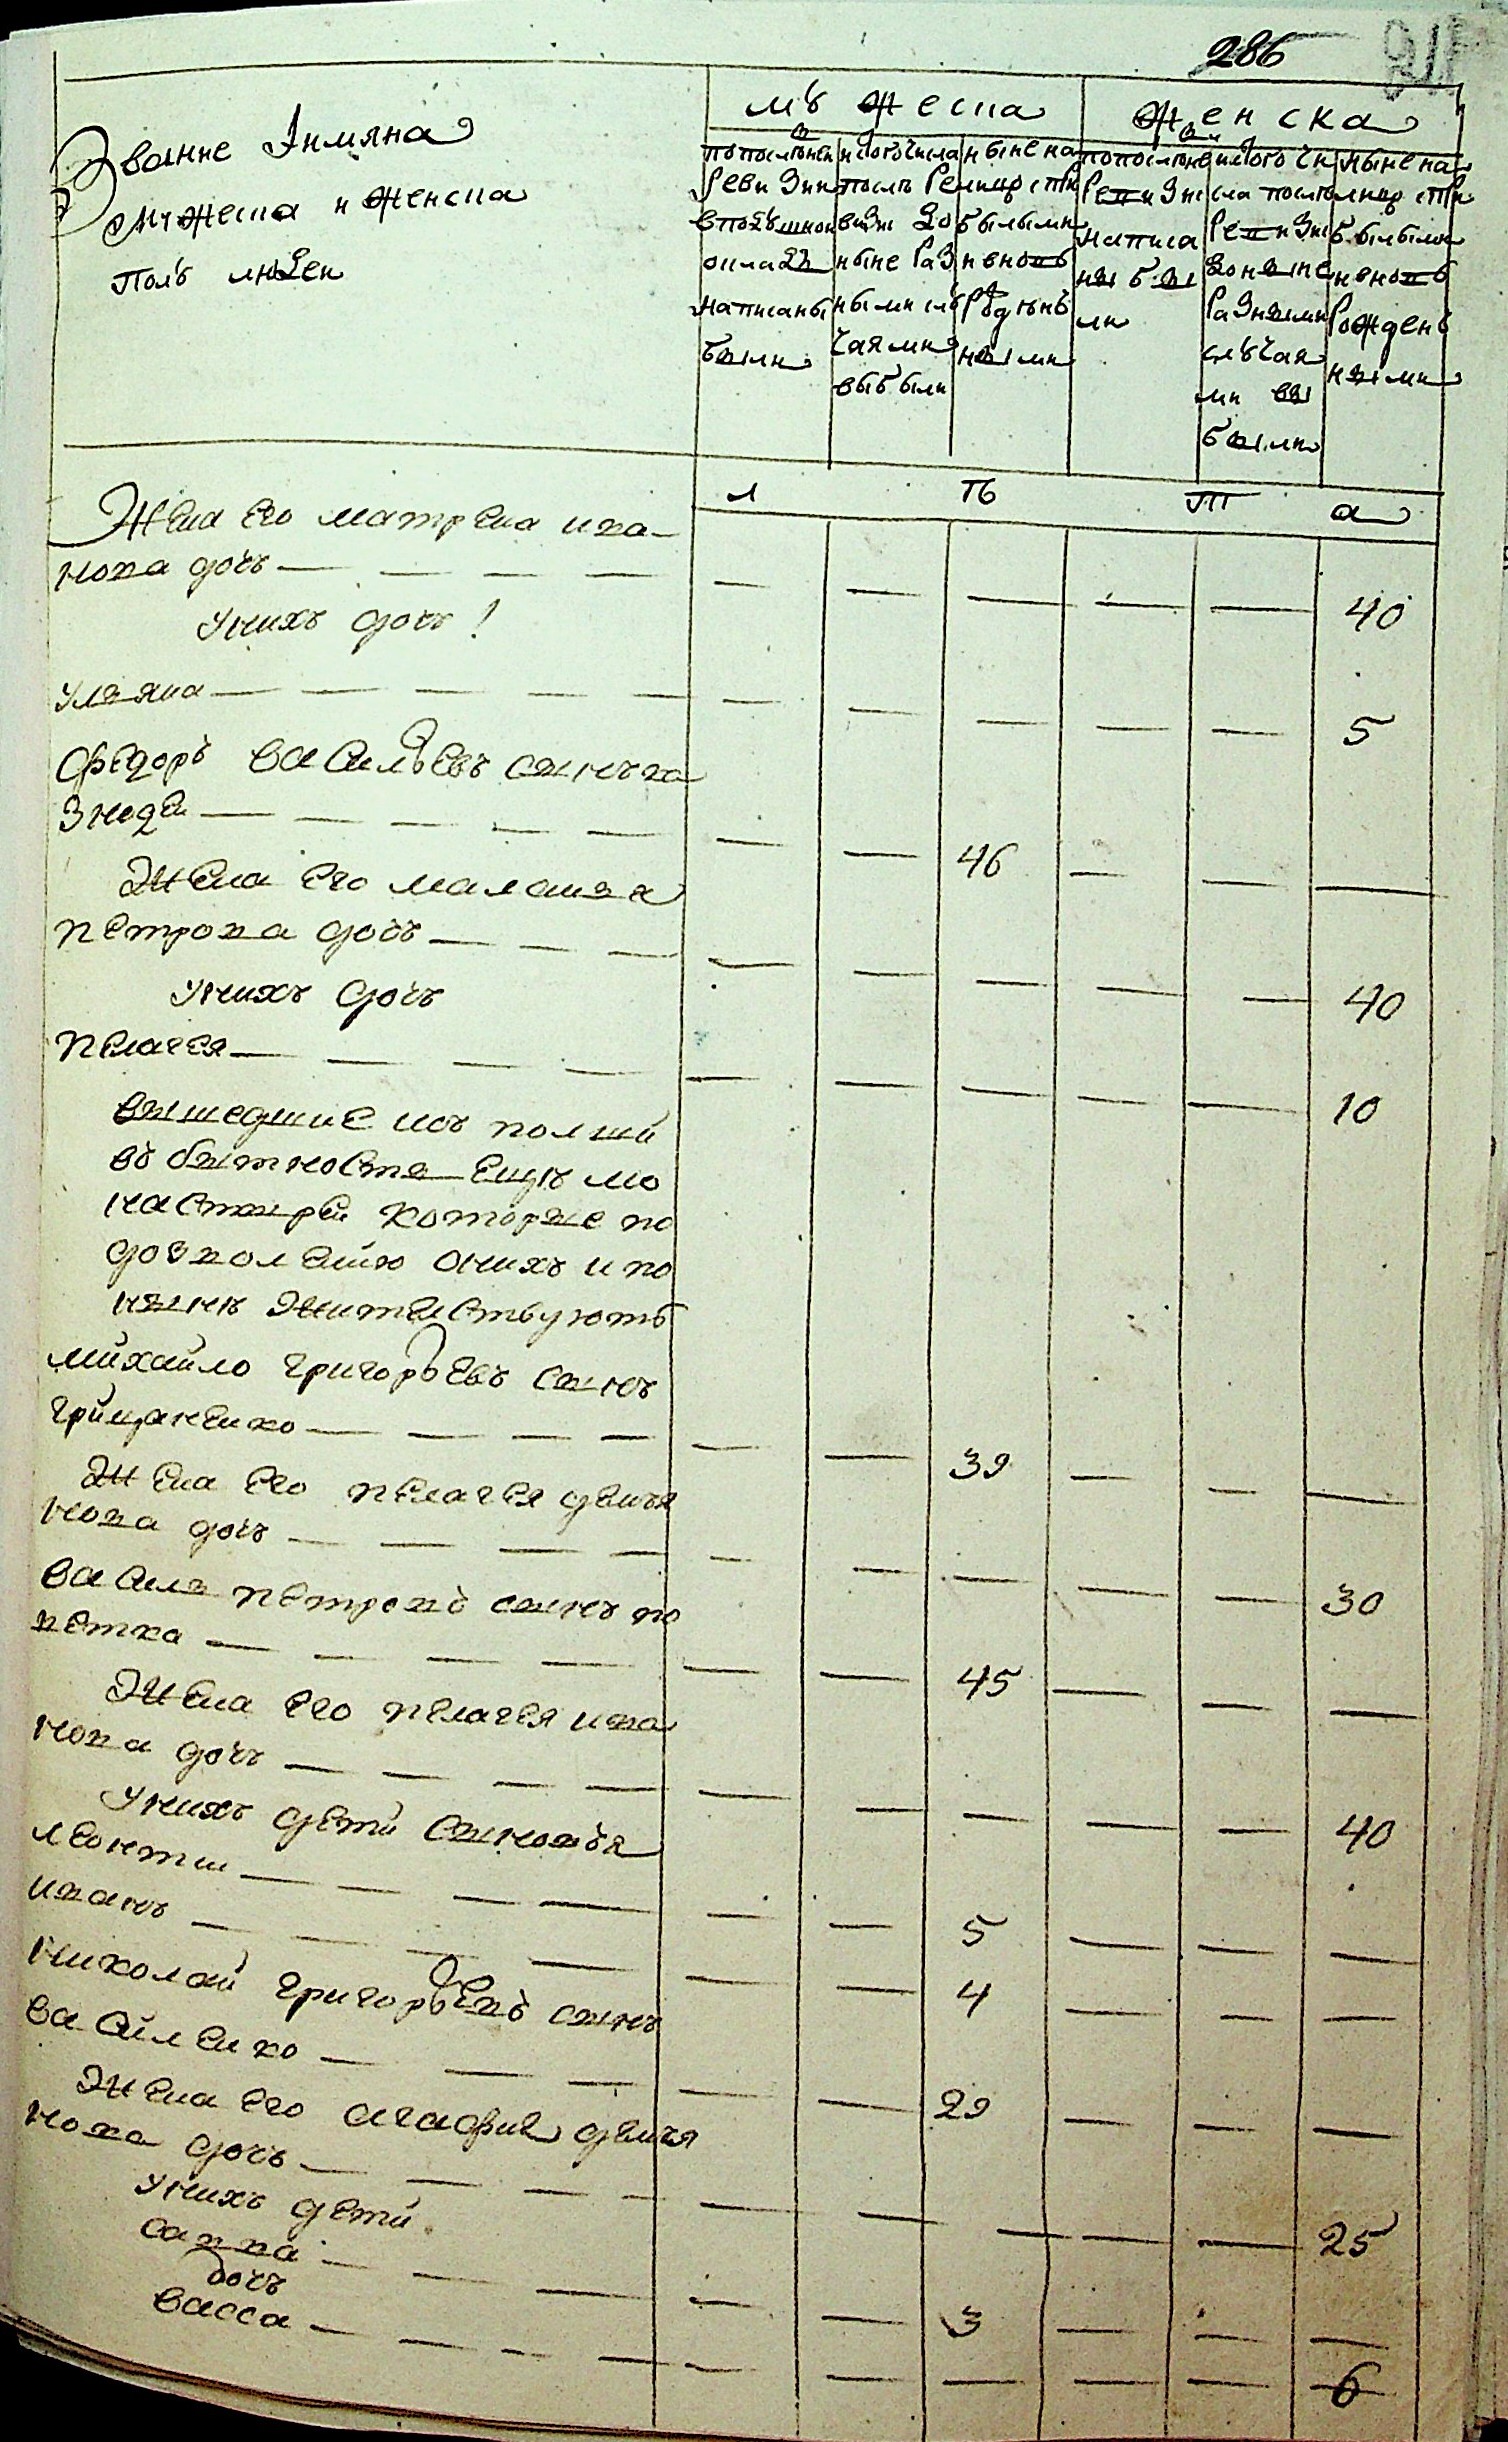 286
Звание Јимяна
Мужеска и женска
полъ людей
мъжеска
женска
попослѣдней
Ревизии
вподушном
окладѣ
написаны
были
истого числа
послѣ Ре
визи до
ныне раз
ными слу
чаями
выбыли
ныне на
лицо стри
былыми
и вновь
рожден
ными
попоследне
Ревизи
написа
ны бы
ли
истого чи
сла послѣ
Ревизи
доныне
разными
случая
ми вы
были
ныне на
лицо стри
былыми
и вновь
рожденъ
ными
л ѣ т а
Жена его матрена ива-
нова дочь — — — — — — — — — 40
Унихъ дочь
ульяна — — — — — — — — — — 5
Федоръ Васильевъ сынъ ка
знодей — — — — — — — 46 — — —
Жена его маланья
петрова дочь — — — — — — — — 40
унихъ дочь
пелагея — — — — — — — — — 10
вышедшие изъ полши
въ бытность ещѣ мо
настырей которые по
дозволению оныхъ и по
нынѣ жительствуютъ
михайло григорьевъ сынъ
грищенко — — — — — — 39 — — —
Жена его пелагея демья
нова дочь — — — — — — — — — 30
василь петровъ сынъ по
ветка — — — — — — 45 — — —
Жена его пелагея ива
нова дочь — — — — — — — — — 40
Унихъ дети сыновья
леонтий — — — — — — 5 — — —
иванъ — — — — — — 4 — — —
николай григорьевъ сынъ
василенко — — — — — 29 — — —
Жена его агафия демья
нова дочь — — — — — — — — — 25
унихъ дети
савва — — — — — 3 — — —
дочь
васса — — — — — — — — — 6